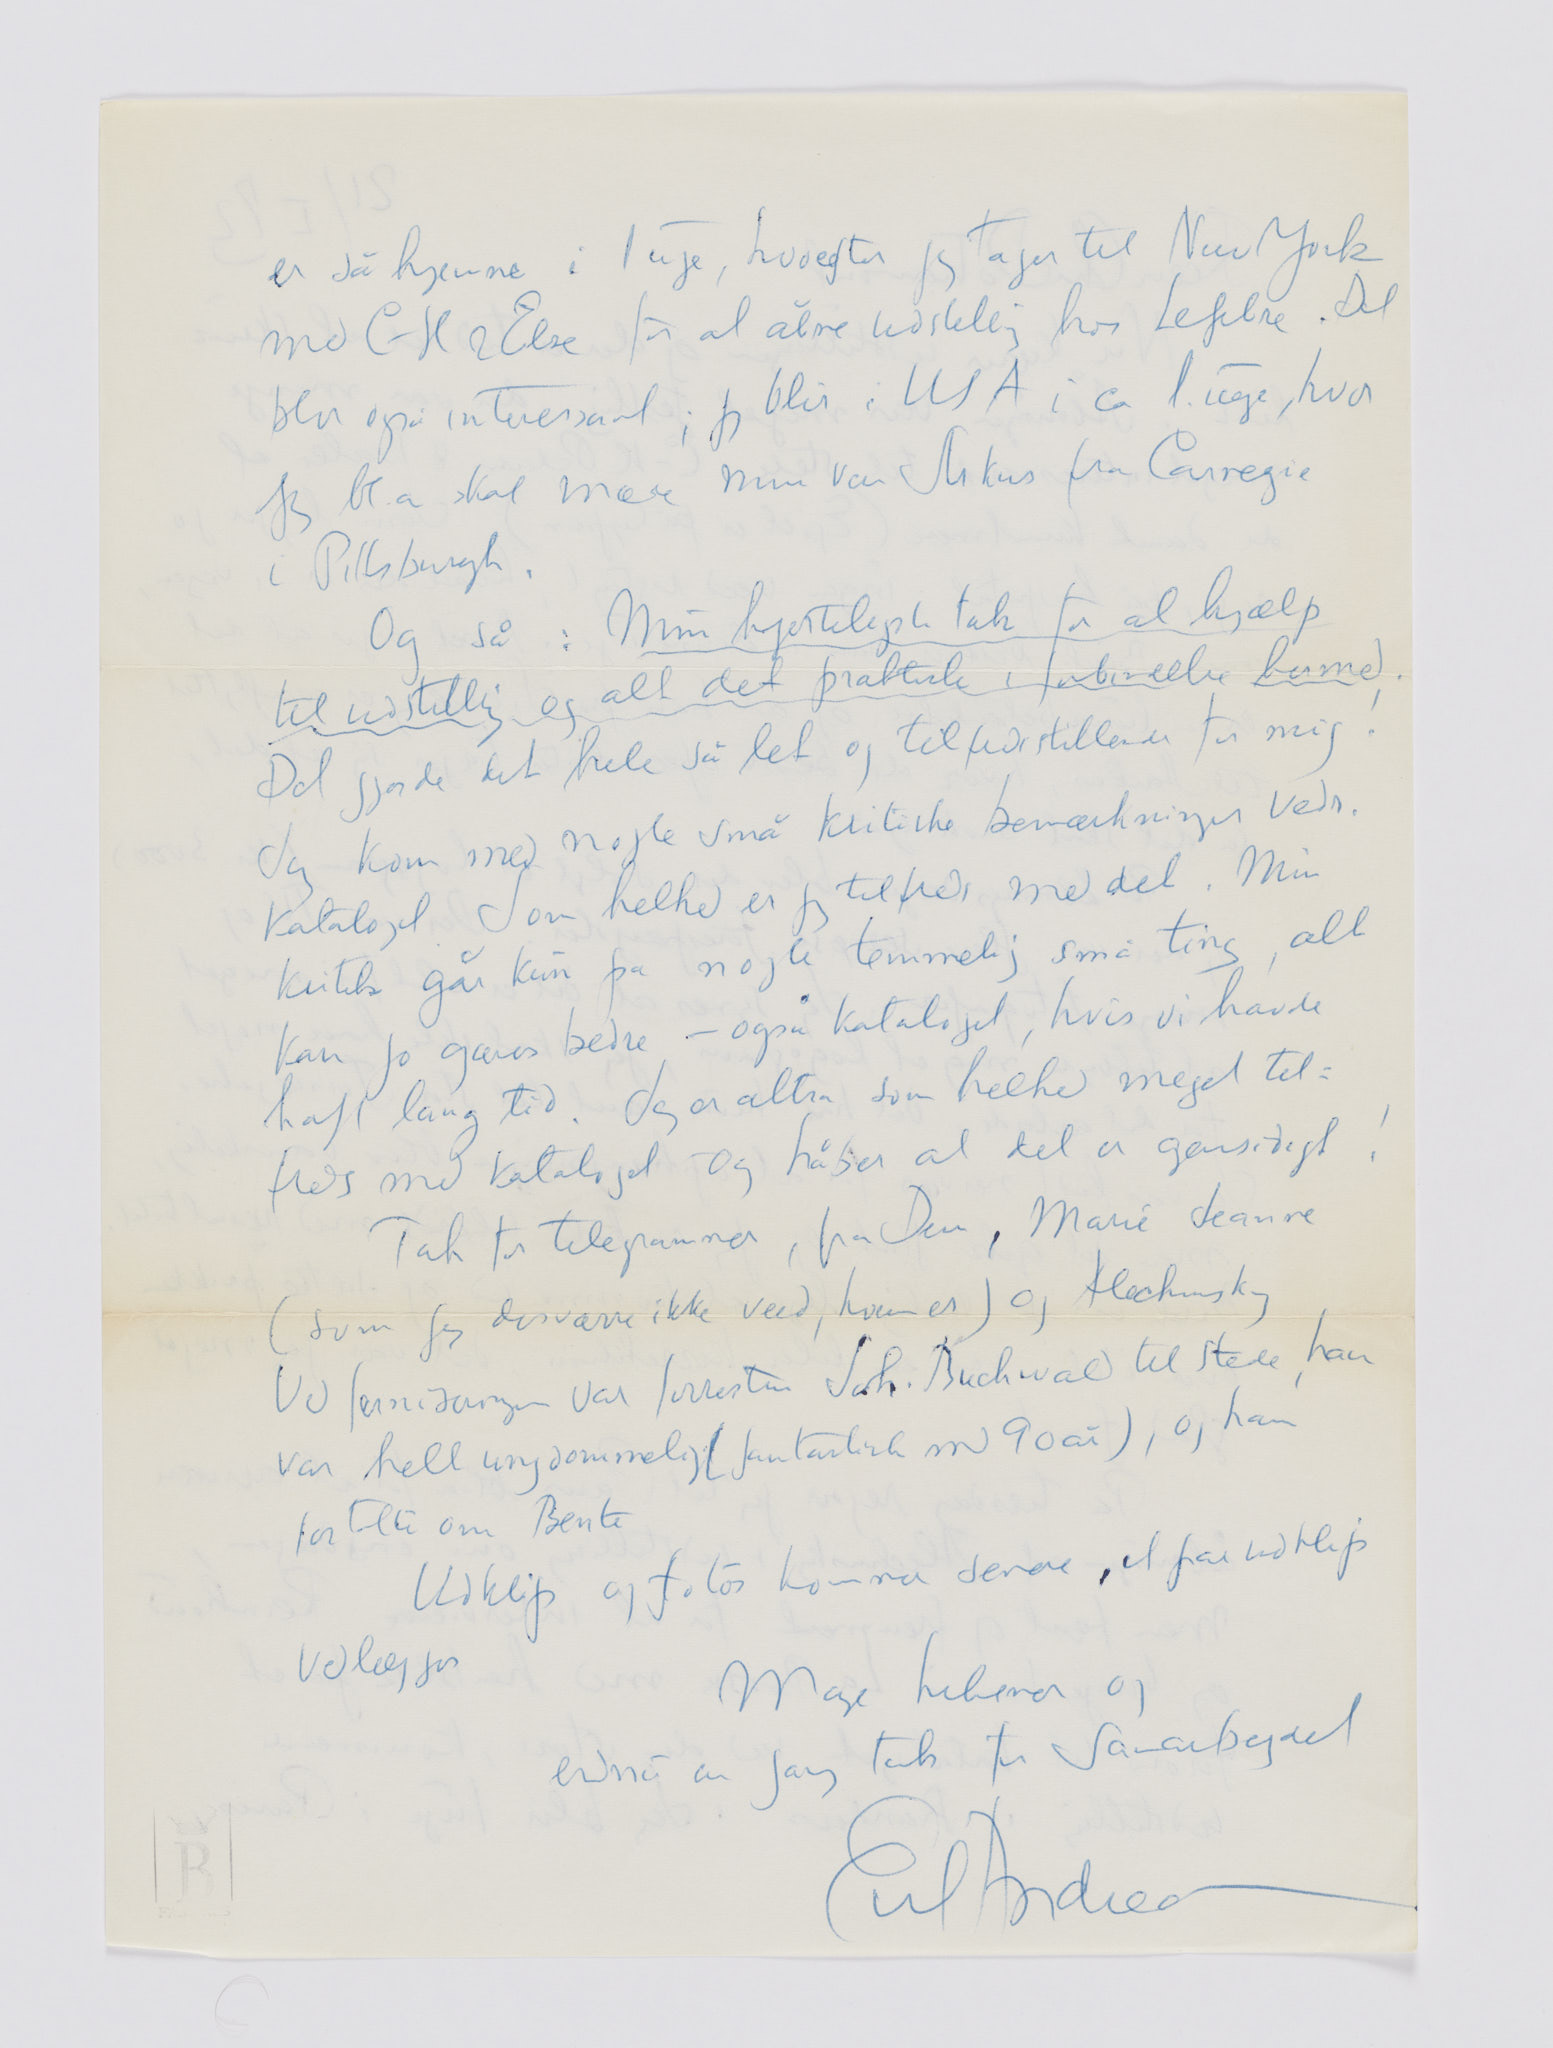 er så hjemme i 1 uge, hvorefter jeg tager til New York
med C-H & Else for at åbne udstillig hos Lefebre. Det
blir også interessant; jeg blir i USA i ca 1. uge, hvor
jeg bl.a skal møde min ven Arkus fra Carnegie
i Pittsburgh.
Og så : Min hjerteligste tak for al hjælp
til udstillig og alt det praktiske i forbindelse hermed.
Det gjorde det hele så let og tilfredsstillende for mig!
Jeg kom med nogle små kritiske bemærkninger vedr.
kataloget. Som helhed er jeg tilfreds med det. Min
kritik går kun på nogle temmelig små ting, alt
kan jo gøres bedre – også kataloget, hvis vi havde
haft lang tid. Jeg er altså som helhed meget til=
freds med kataloget – og håber at det er gensidigt!
Tak for telegrammer, fra Dem, Marie Jeanne
(som jeg desværre ikke veed, hvem er) og
Ved ferniseringen var forresten Joh. Buchwald til stede, han
var helt ungdommelig (fantastisk med 90 år), og han
fortalte om Bente
Udklip og fotos kommer senere, et par udklip
vedlægges
Mage hilsener og
endnu en gang tak for Samarbejdet
Egill